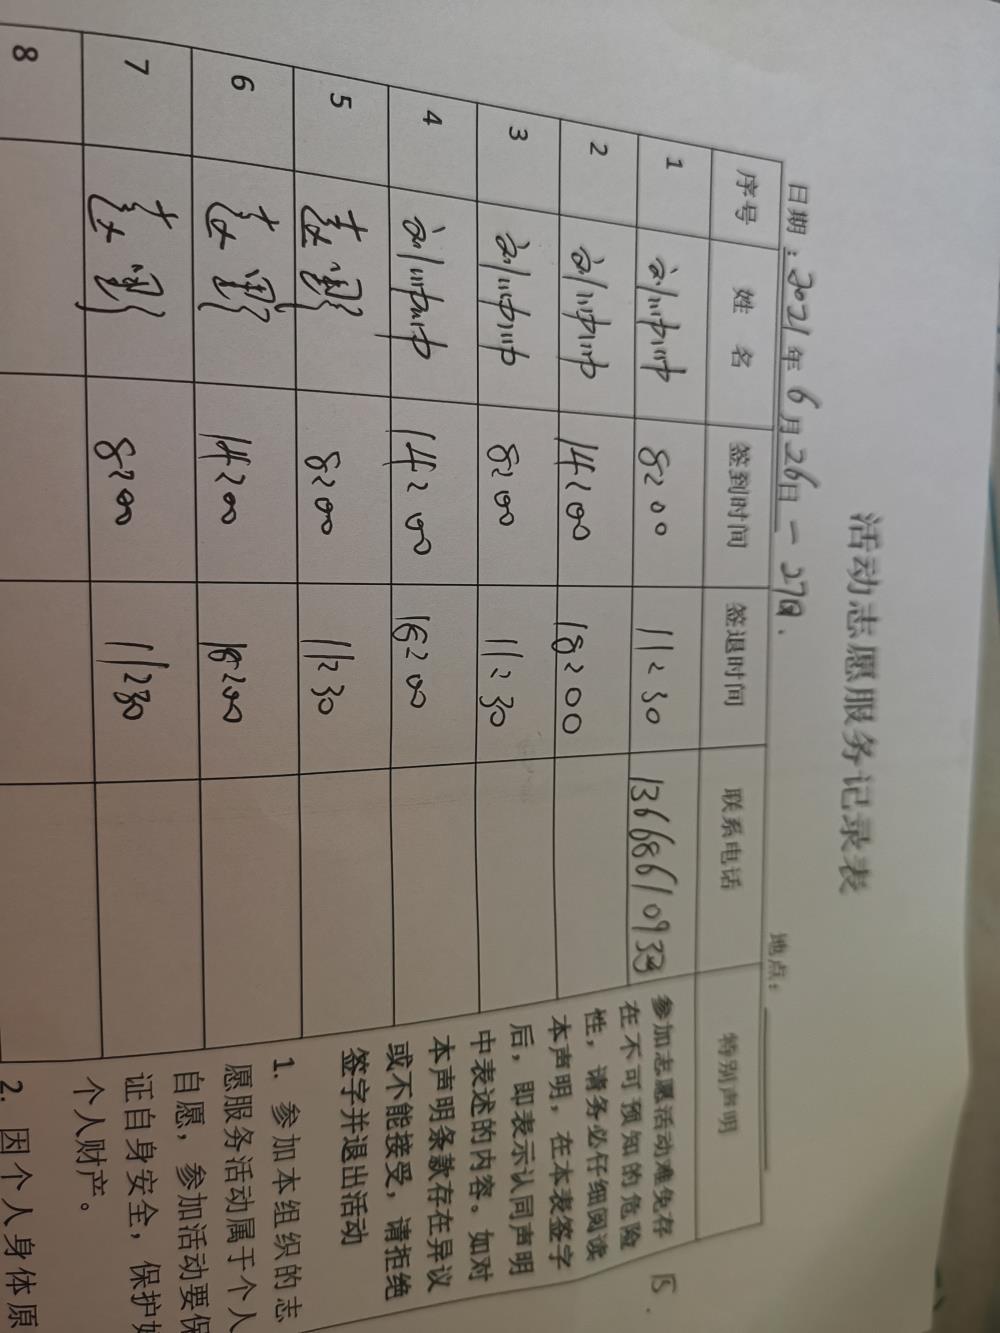 活动志愿服务记录表
日期：2021年6月26日－27日. 地点：
序号 姓名 签到时间 签退时间 联系电话 特别声明
1 8:00 11:30 13668610933
2 14:00 18:00
3 8:00 11:30
4 14:00 18:00
5 8:00 11:30
6 14:00 18:00
7 8:00 11:30
8
参加志愿活动难免存
在不可预知的危险
性，请务必仔细阅读
本声明，在本表签字
后，即表示认同声明
中表述的内容。如对
本声明条款存在异议
或不能接受，请拒绝
签字并退出活动
1. 参加本组织的志
愿服务活动属于个人
自愿，参加活动要保
证自身安全，保护好
个人财产。
2. 因个人身体原